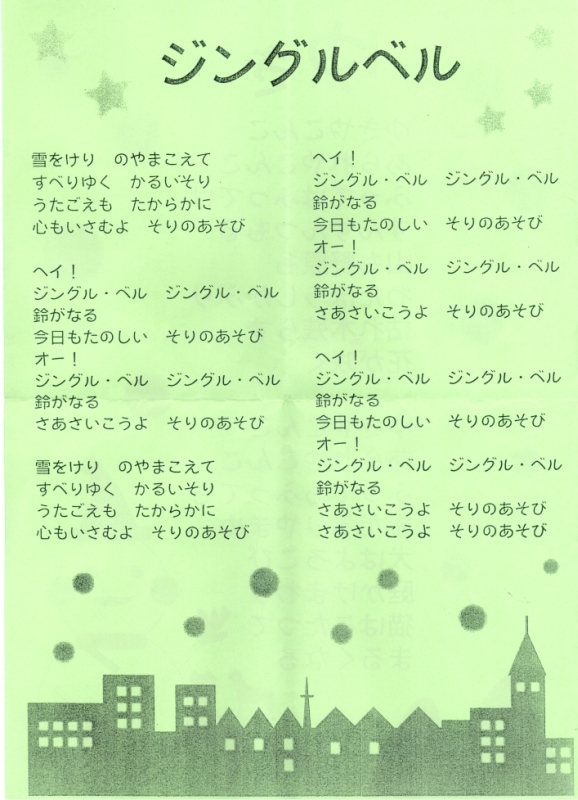 ジングルベル
雪をけり　のやまこえて
すべりゆく　かるいそり
うたごえも　たからかに
心もいさむよ　そりのあそび
ヘイ！
ジングル・ベル　ジングル・ベル
鈴がなる
今日もたのしい　そりのあそび
オー！
ジングル・ベル　ジングル・ベル
鈴がなる
さあさいこうよ　そりのあそび
雪をけり　のやまこえて
すべりゆく　かるいそり
うたごえも　たからかに
心もいさむよ　そりのあそび
ヘイ！
ジングル・ベル　ジングル・ベル
鈴がなる
今日もたのしい　そりのあそび
オー！
ジングル・ベル　ジングル・ベル
鈴がなる
さあさいこうよ　そりのあそび
ヘイ！
ジングル・ベル　ジングル・ベル
鈴がなる
今日もたのしい　そりのあそび
オー！
ジングル・ベル　ジングル・ベル
鈴がなる
さあさいこうよ　そりのあそび
さあさいこうよ　そりのあそび